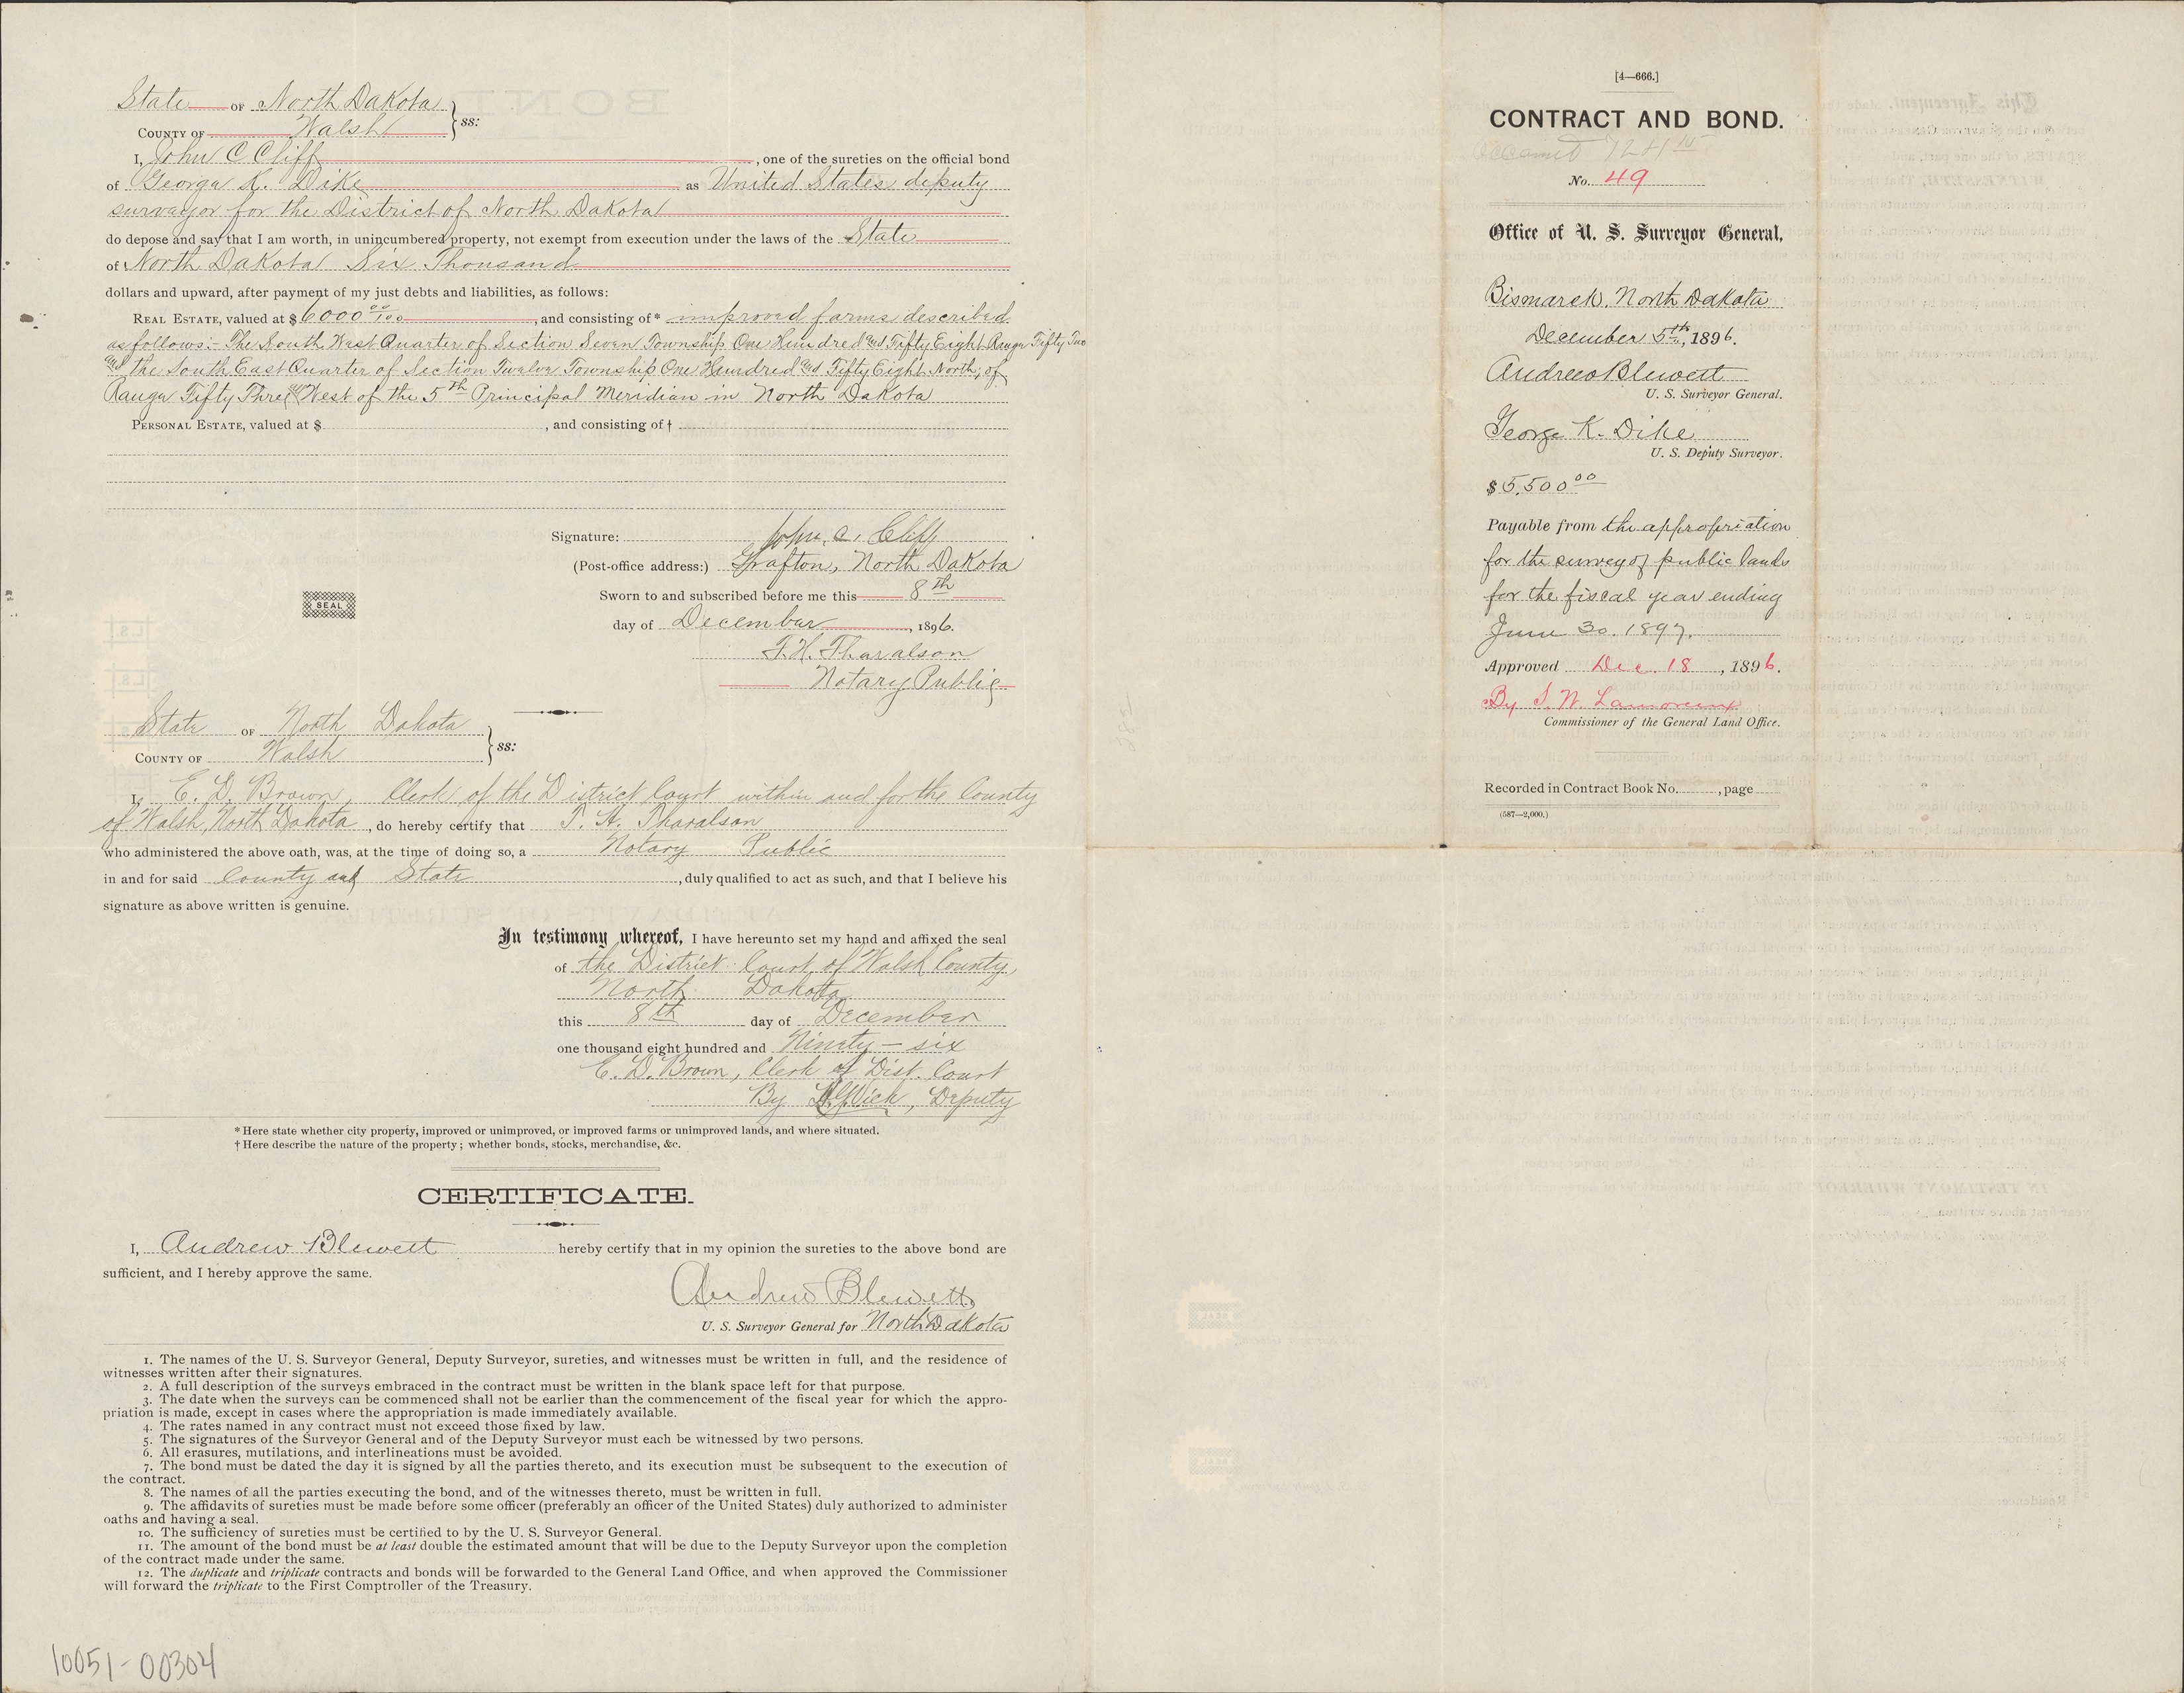 State of North Dakota } ss:
County of Walsh
I, John C Cliff, one of the sureties on the official bond
of George K. Dike as United States deputy
surveyor for the District of North Dakota
do depose and say that I am worth, in unincumbered property, not exempt from execution under the laws of the State
of North Dakota Six Thousand
dollars and upward, after payment of my just debts and liabilities, as follows:
Real Estate, valued at $6000 00/100, and consisting of* improved farms described
as follows:- The South West Quarter of Section Seven Township One Hundred and Fifty Eight Range Fifty Two
and the South East Quarter of Section Twelve Township One Hundred and Fifty Eight North, of
Range Fifty Three West of the 5th Principal Meridian in North Dakota
Personal Estate, valued at $ , and consisting of †
Signature: John. C. Cliff
(Post-office address:) Grafton, North Dakota
SEAL
Sworn to and subscribed before me this 8th
day of December, 1896.
T. H. Tharalson
Notary Public
State of North Dakota } ss:
County of Walsh
I, E. D. Brown, Clerk of the District Court within and for the County
of Walsh, North Dakota, do hereby certify that T. H. Tharalson
who administered the above oath, was, at the time of doing so, a Notary Public
in and for said County and State, duly qualified to act as such, and that I believe his
signature as above written is genuine.
In testimony whereof, I have hereunto set my hand and affixed the seal
of the District Court of Walsh County,
North Dakota
this 8th day of December
one thousand eight hundred and Ninety-six
E. D. Brown, Clerk of Dist. Court
By Wick, Deputy
* Here state whether city property, improved or unimproved, or improved farms or unimproved lands, and where situated.
† Here describe the nature of the property; whether bonds, stocks, merchandise, &c.
CERTIFICATE.
I, Andrew Blewett hereby certify that in my opinion the sureties to the above bond are
sufficient, and I hereby approve the same.
Andrew Blewett
U. S. Surveyor General for North Dakota
1. The names of the U. S. Surveyor General, Deputy Surveyor, sureties, and witnesses must be written in full, and the residence of
witnesses written after their signatures.
2. A full description of the surveys embraced in the contract must be written in the blank space left for that purpose.
3. The date when the surveys can be commenced shall not be earlier than the commencement of the fiscal year for which the appro-
priation is made, except in cases where the appropriation is made immediately available.
4. The rates named in any contract must not exceed those fixed by law.
5. The signatures of the Surveyor General and of the Deputy Surveyor must each be witnessed by two persons.
6. All erasures, mutilations, and interlineations must be avoided.
7. The bond must be dated the day it is signed by all the parties thereto, and its execution must be subsequent to the execution of
the contract.
8. The names of all the parties executing the bond, and of the witnesses thereto, must be written in full.
9. The affidavits of sureties must be made before some officer (preferably an officer of the United States) duly authorized to administer
oaths and having a seal.
10. The sufficiency of sureties must be certified to by the U. S. Surveyor General.
11. The amount of the bond must be at least double the estimated amount that will be due to the Deputy Surveyor upon the completion
of the contract made under the same.
12. The duplicate and triplicate contracts and bonds will be forwarded to the General Land Office, and when approved the Commissioner
will forward the triplicate to the First Comptroller of the Treasury.
10051-00304
[4—666.]
CONTRACT AND BOND.
No. 49
Office of U. S. Surveyor General,
Bismarck, North Dakota
December 5th, 1896.
Andrew Blewett
U. S. Surveyor General.
George K. Dike
U. S. Deputy Surveyor.
$5,500 00
Payable from the appropriation
for the survey of public lands
for the fiscal year ending
June 30. 1897.
Approved Dec. 18, 1896.
By S. W. Lamoreux
Commissioner of the General Land Office.
Recorded in Contract Book No. , page
(587—2,000.)